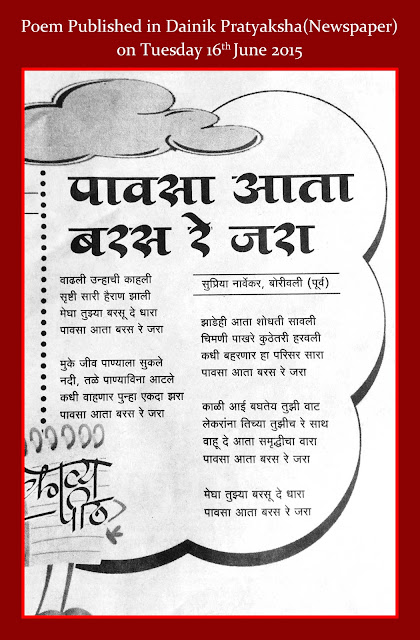 Poem Published in Dainik Pratyaksha(Newspaper)
on Tuesday 16th June 2015
पावसा आता
बरस रे जरा
वाढली उन्हाची काहली
सृष्टी सारी हैराण झाली
मेघा तुझ्या बरसू दे धारा
पावसा आता बरस रे जरा
मुके जीव पाण्याला सुकले
नदी, तळे पाण्याविना आटले
कधी वाहणार पुन्हा एकदा झरा
पावसा आता बरस रे जरा
काव्य
पीठ
सुप्रिया नार्वेकर, बोरीवली (पूर्व)
झाडेही आता शोधती सावली
चिमणी पाखरे कुठेतरी हरवली
कधी बहरणार हा परिसर सारा
पावसा आता बरस रे जरा
काळी आई बघतेय तुझी वाट
लेकरांना तिच्या तुझीच रे साथ
वाहू दे आता समृद्धीचा वारा
पावसा आता बरस रे जरा
मेघा तुझ्या बरसू दे धारा
पावसा आता बरस रे जरा